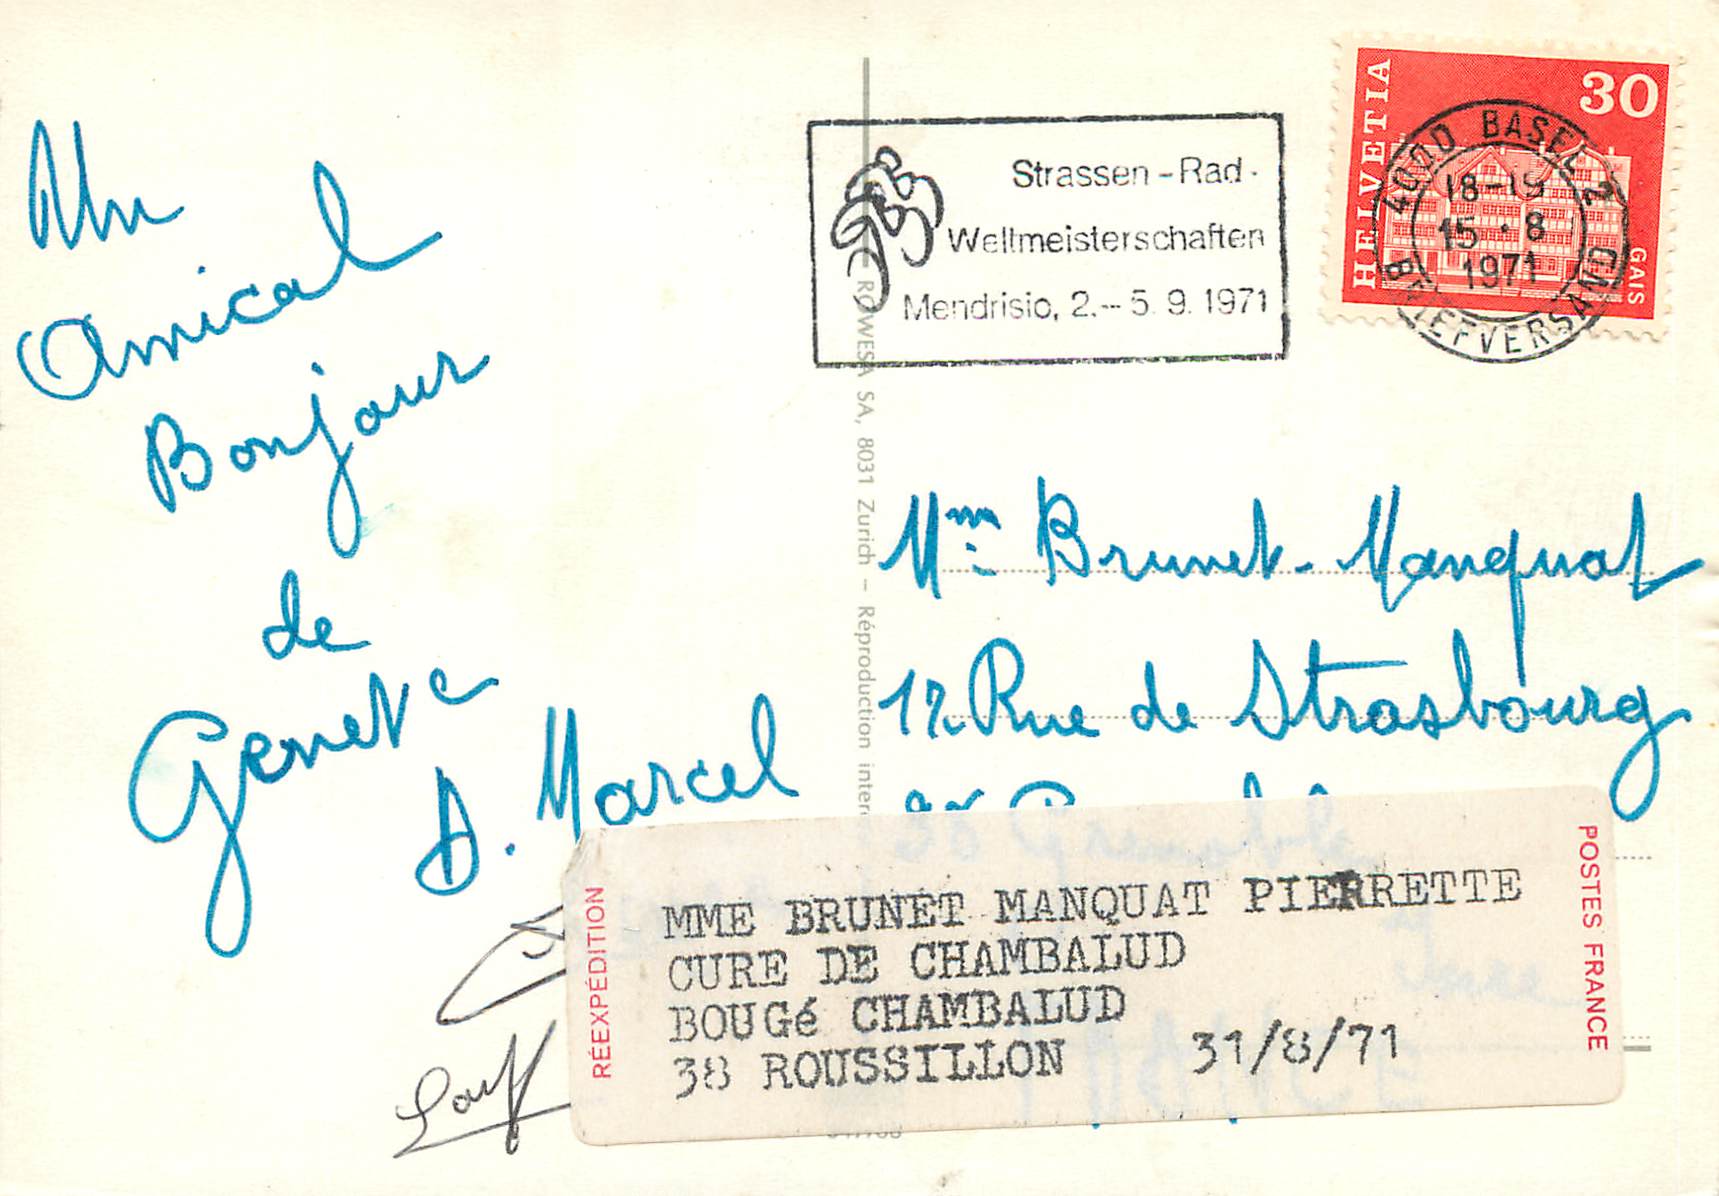 Un
Amical
Bonjour
de
Geneve
A. Marcel
Strassen-Rad-
Weltmeisterschaften
Mendrisio, 2.--5.9.1971
HELVETIA
30
GAIS
4000 BASEL 2
18-19
15.8
1971
BRIEFVERSAND
ROWESA SA, 8031 Zurich – Réproduction inter
Mme Brunet-Manquat
12 Rue de Strasbourg
38 Grenoble
Isère
RÉEXPÉDITION
MME BRUNET MANQUAT PIERRETTE
CURE DE CHAMBALUD
BOUGé CHAMBALUD
38 ROUSSILLON 31/8/71
POSTES FRANCE